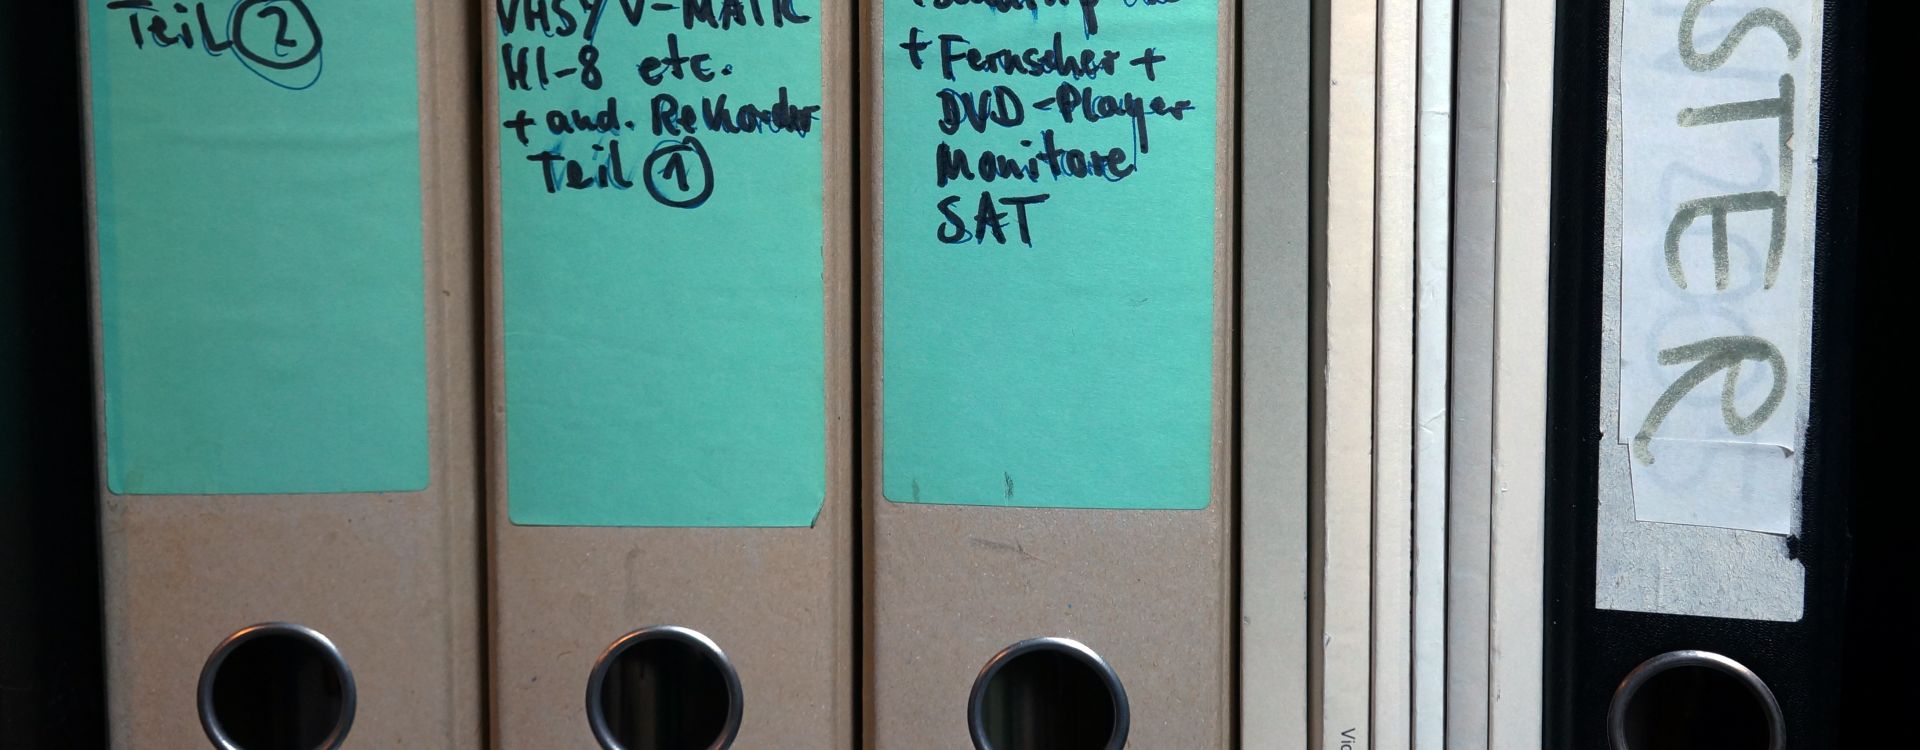 Teil 2
VHS/V-MATIC
HI-8 etc.
+ and. Rekorder
Teil 1
+ Fernseher +
DVD-Player
Monitore
SAT
STER